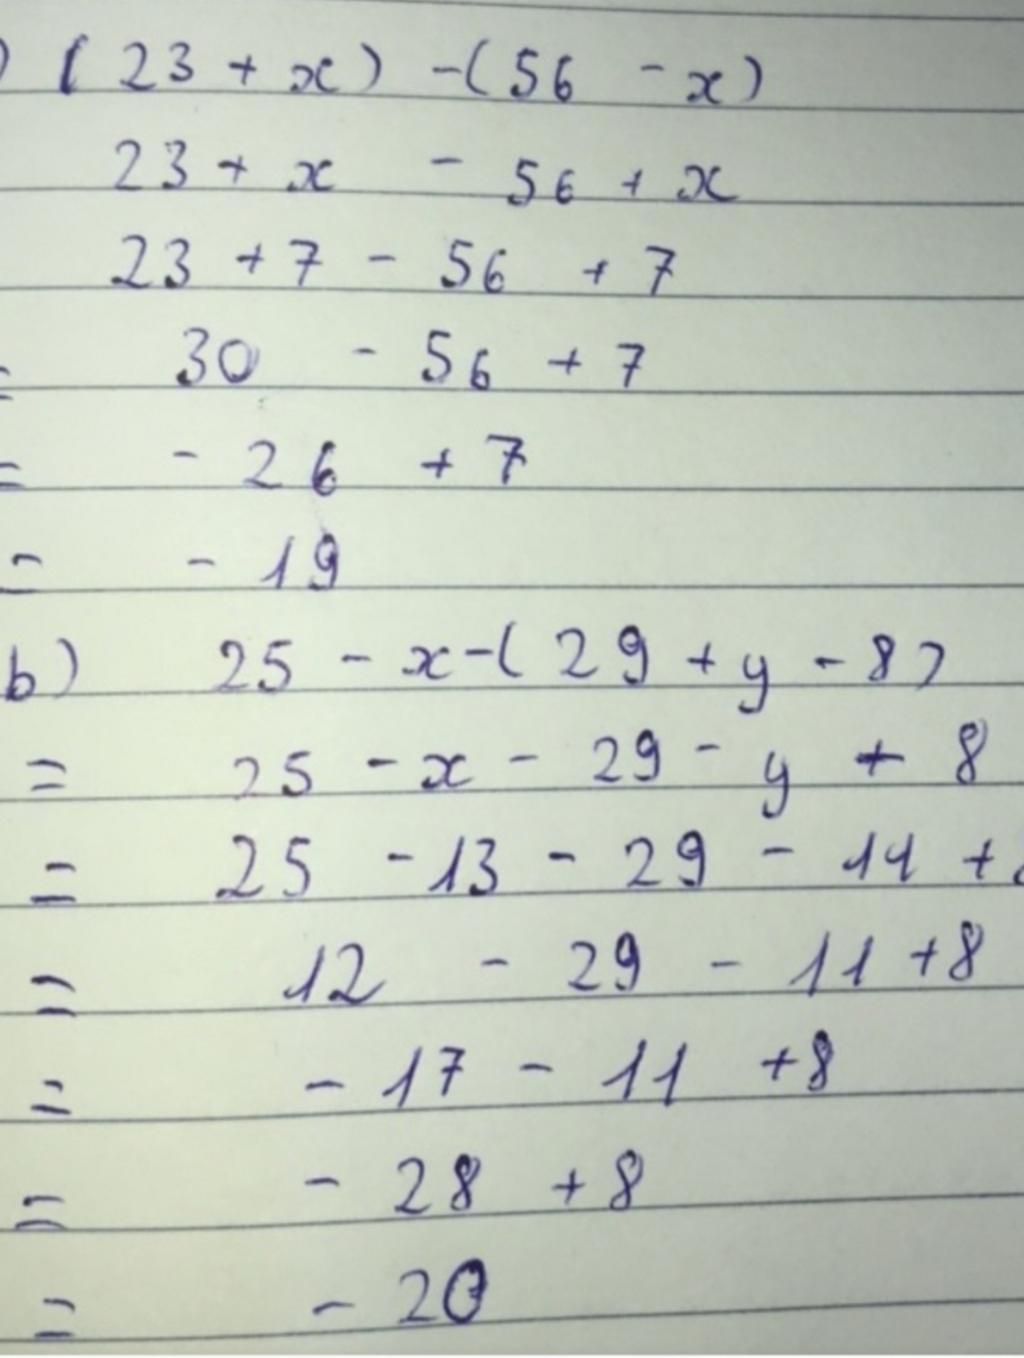 ) (23 + x) -(56 - x)
23 + x - 56 + x
23 + 7 - 56 + 7
= 30 - 56 + 7
= - 26 + 7
= - 19
b) 25 - x-(29 + y - 8)
= 25 - x - 29 - y + 8
= 25 - 13 - 29 - 11 +
= 12 - 29 - 11 +8
= - 17 - 11 +8
= - 28 +8
= - 20